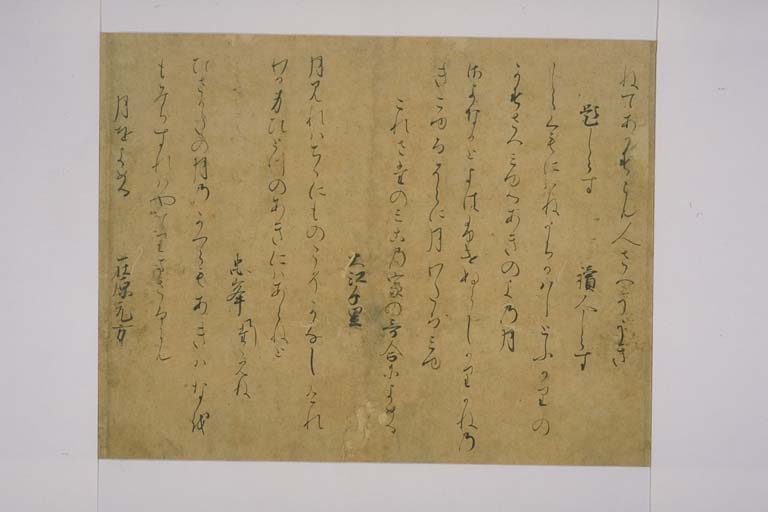 ねてあかすらん人さへそうき
題しらす　讀人しらす
しらくもにはねうちかはしとふかりの
かすさへみゆるあきのよの月
さよなかとよはふけぬらしかりかねの
きこゆるそらに月わたるみゆ
これさたのみこの家の哥合によめる
大江千里
月見れはちゝにものこそかなしけれ
わか身ひとつのあきにはあらねと
忠峯
ひさかたの月のかつらもあきはなを
もみちすれはやてりまさるらん
月をよめる　在原元方